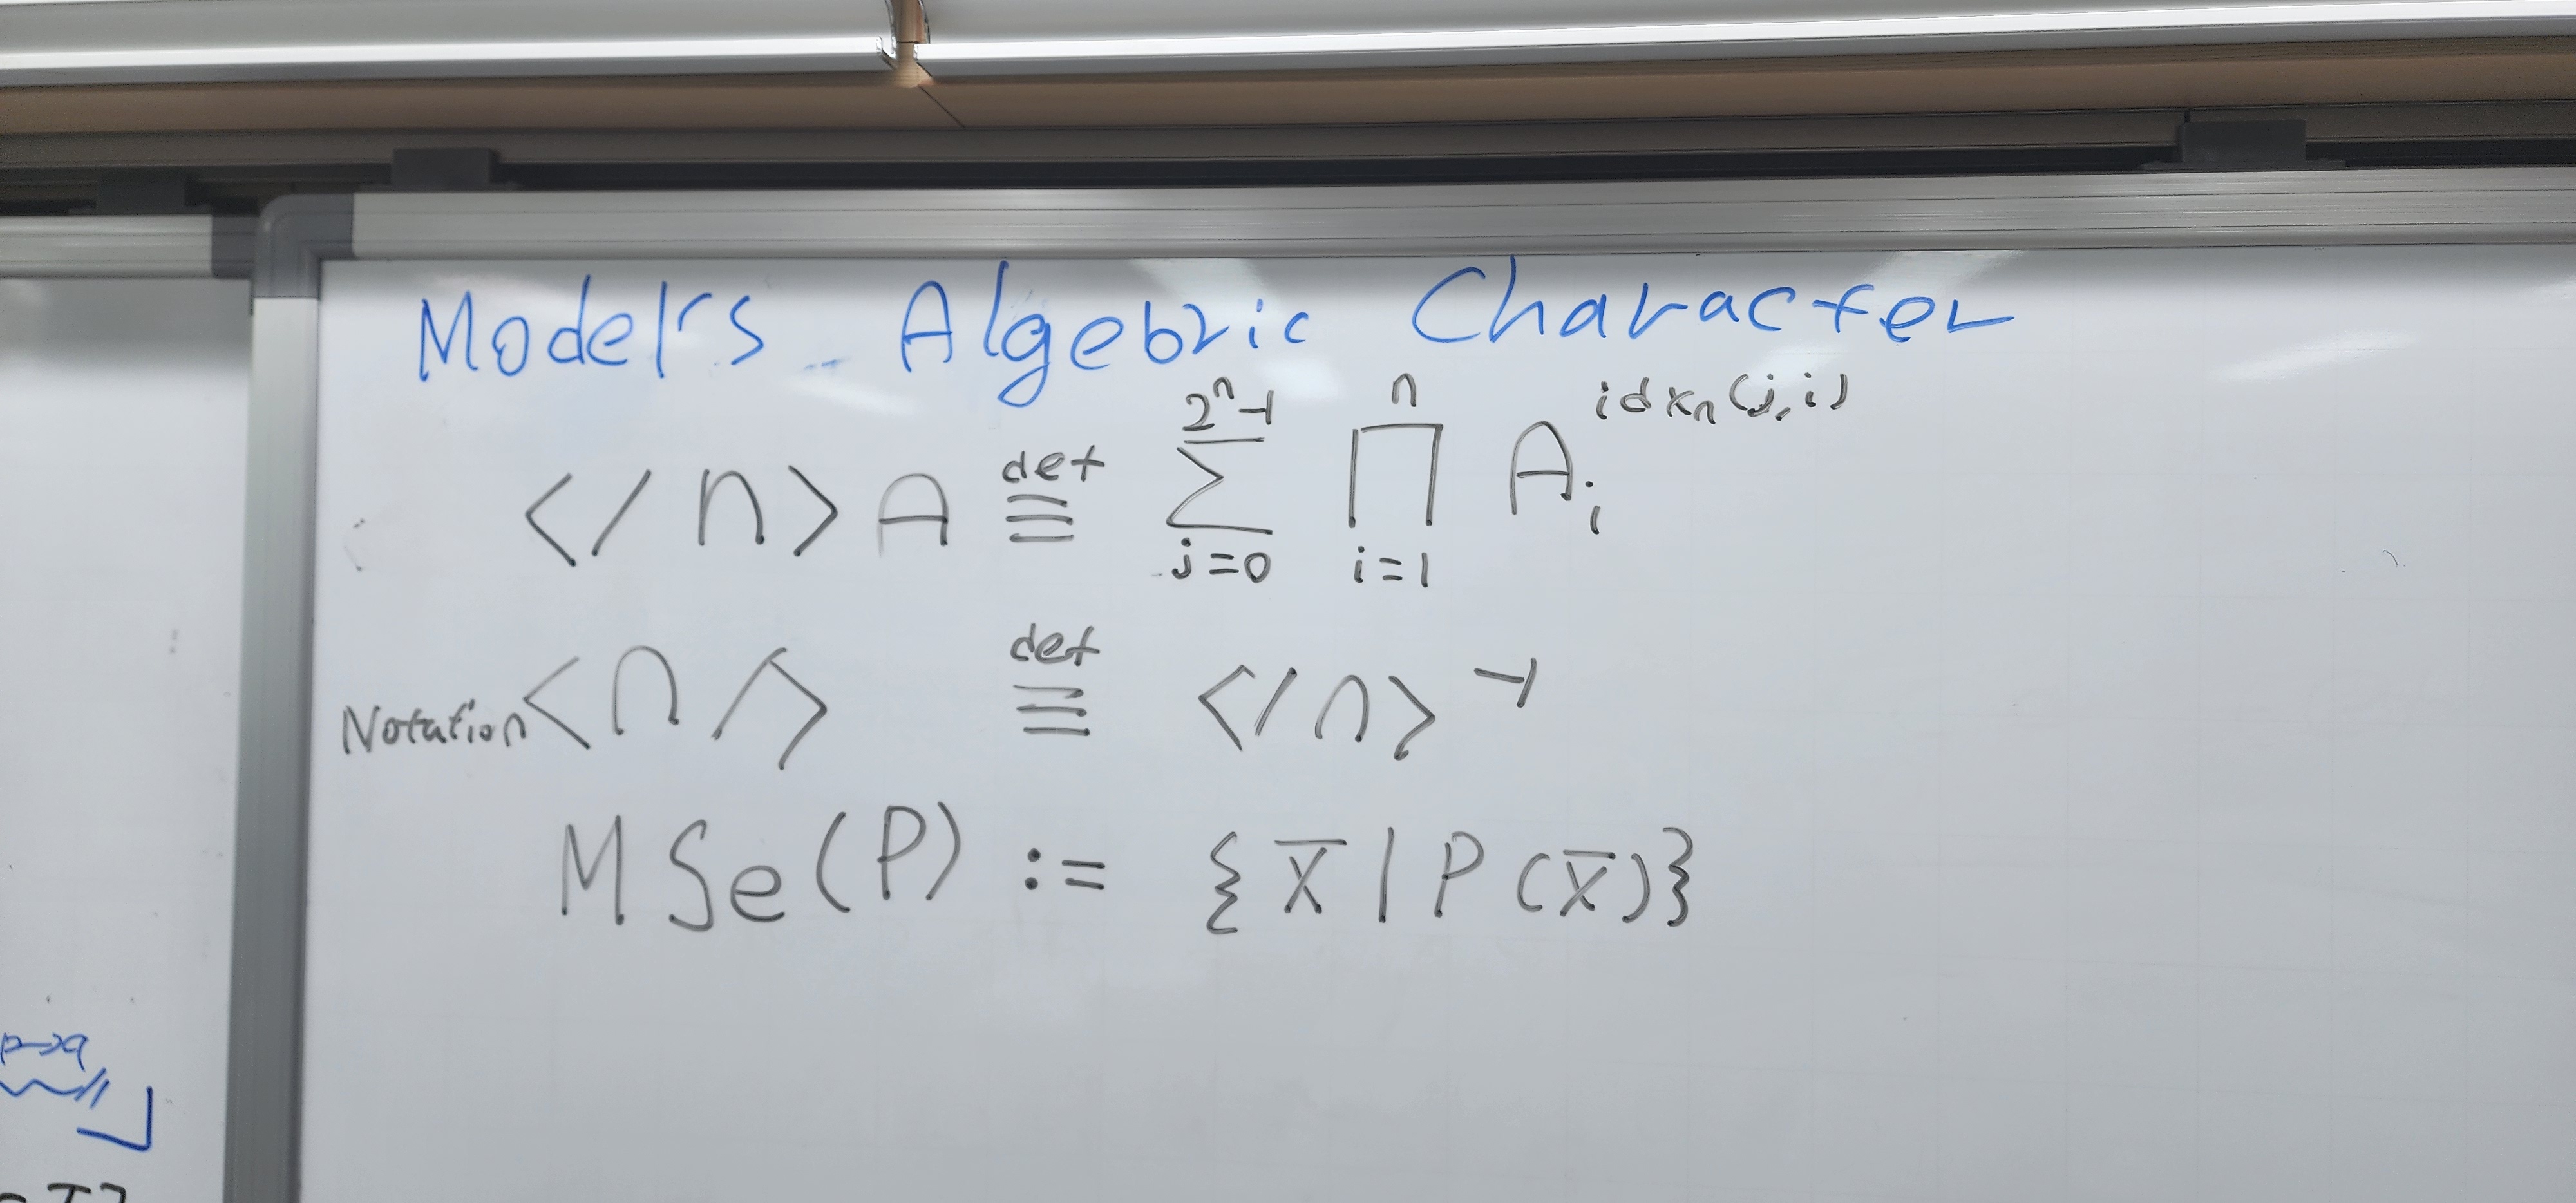 Model's Algebric Character
</n>A ≡^{def} ∑_{j=0}^{2^n-1} ∏_{i=1}^{n} A_i^{idx_n(j,i)}
Notation <n/> ≡^{def} </n>^{-1}
MSe(P) := {x̄ | P(x̄)}
p→q